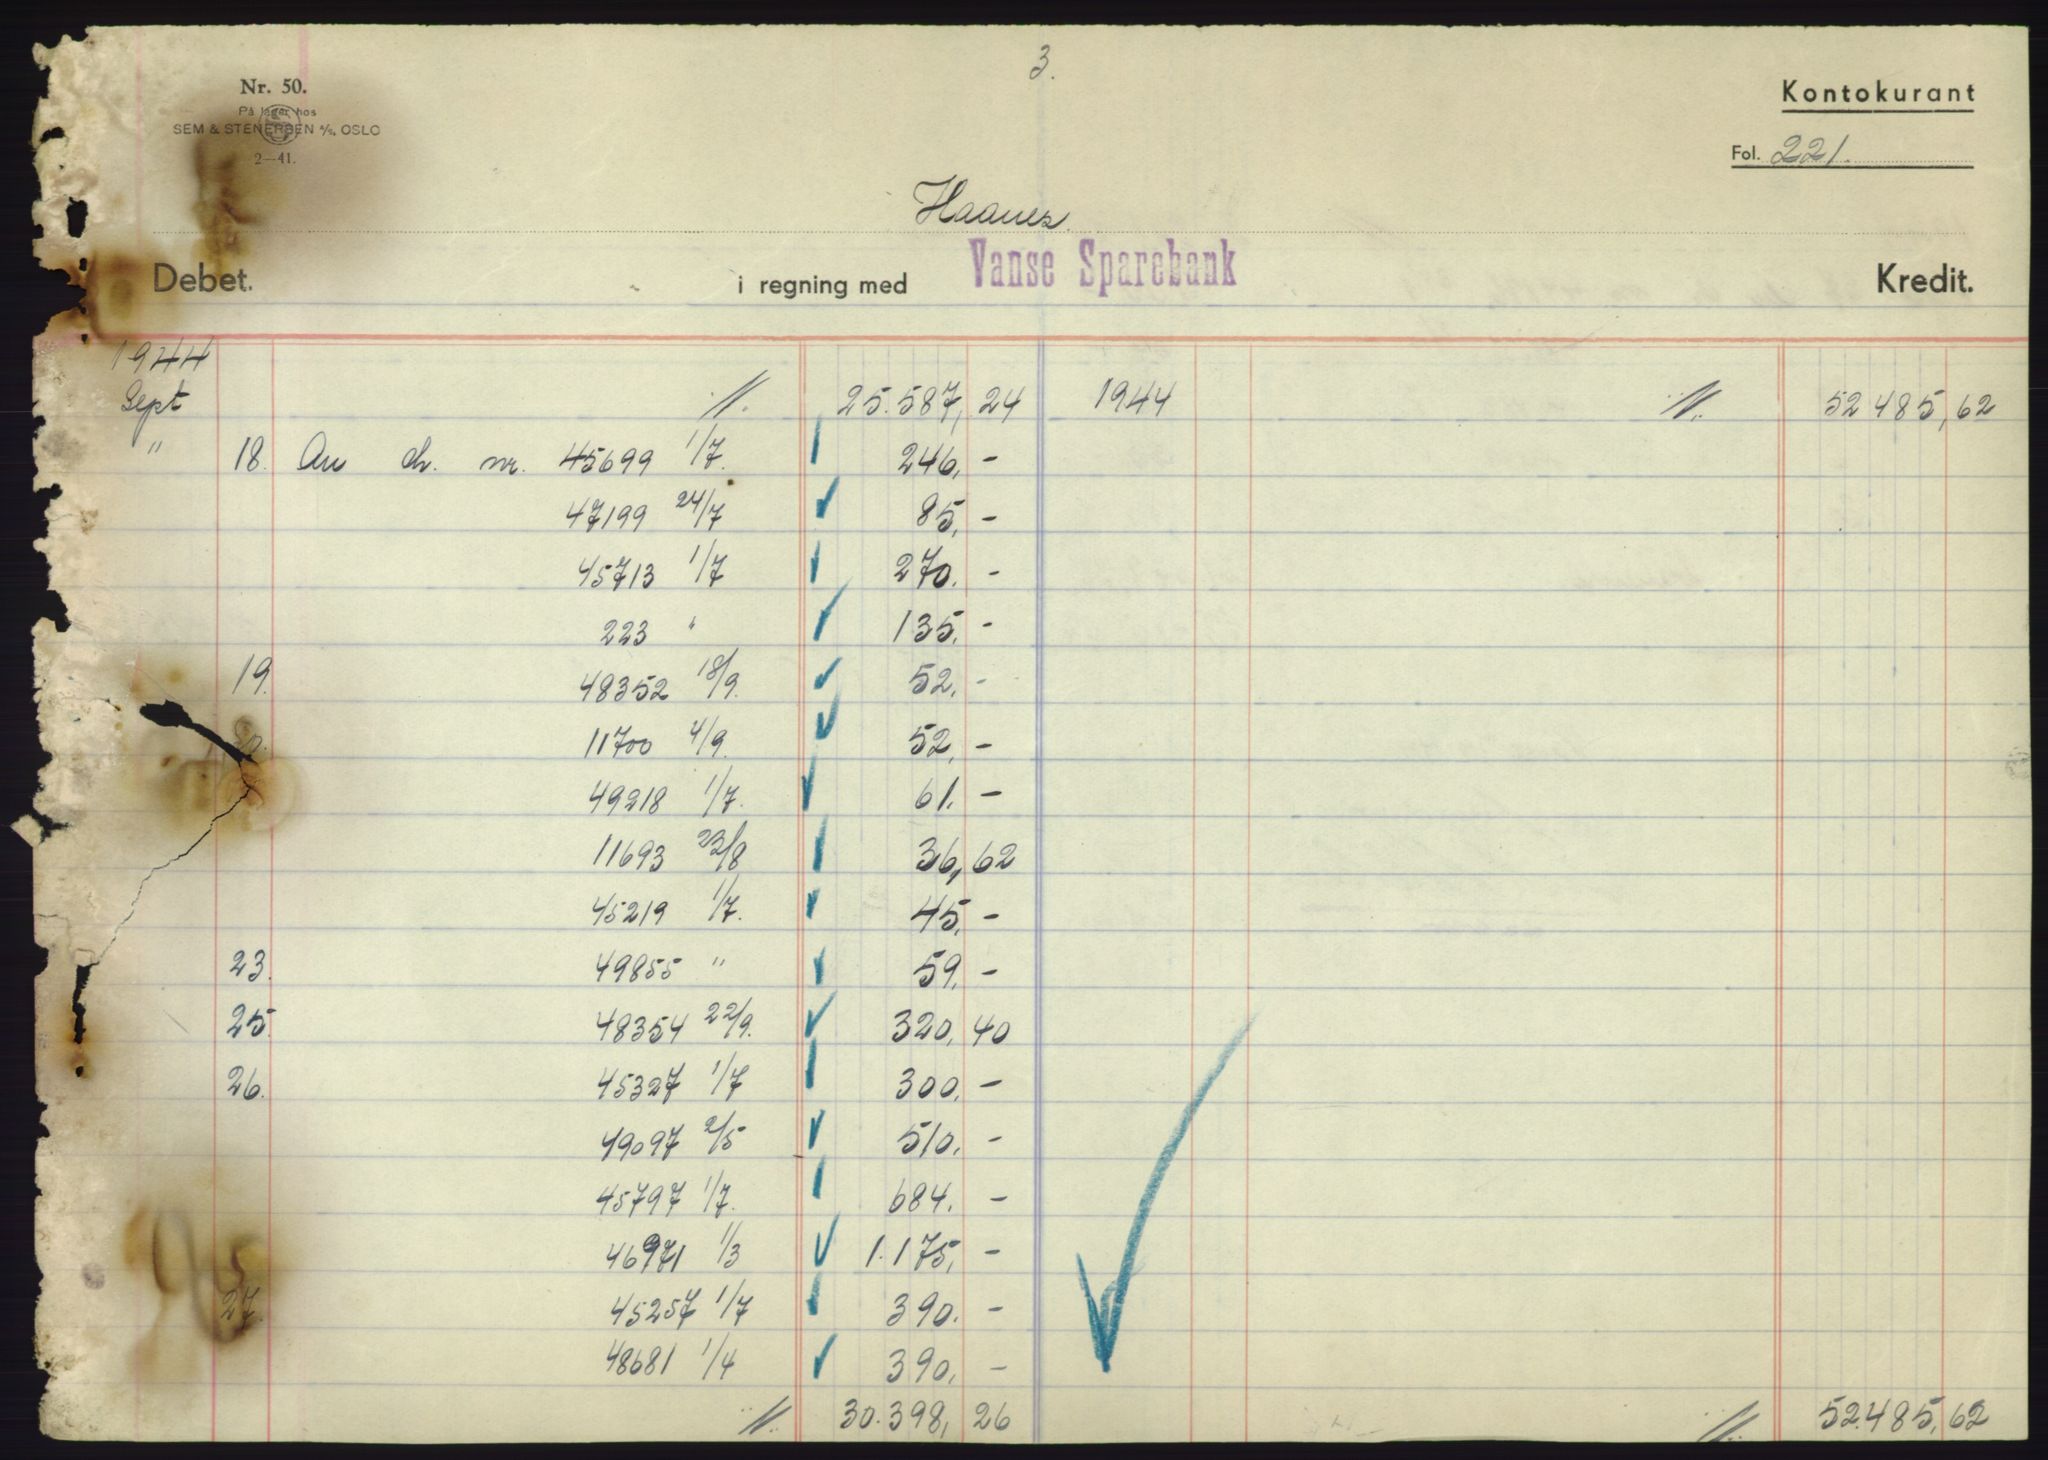 3.
Nr. 50.
På lager hos
SEM & STENERSEN A/S, OSLO
2—41.
Kontokurant
Fol. 221.
Haanes
Debet. i regning med Vanse Sparebank Kredit.
1944
Sept 25.587,24 1944 52 485,62
" 18. An ch. nr. 45699 1/7. 246,-
47199 24/7 85,-
45713 1/7 270.-
223 " 135,-
19. 48352 18/9. 52,-
11700 4/9. 52,-
49218 1/7. 61.-
11693 23/8 36,62
45219 1/7. 45,-
23. 49855 " 59,-
25. 48354 22/9. 320,40
26. 45327 1/7 300,-
49097 2/5 510.-
45797 1/7. 684.-
46971 1/3 1.175,-
27. 45257 1/7 390.-
48681 1/4 390,-
30.398,26 52.485,62